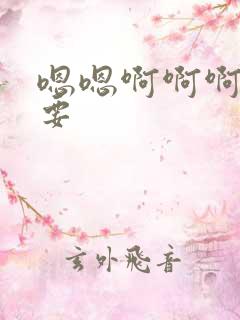 嗯嗯啊啊啊
要
玄外飛音